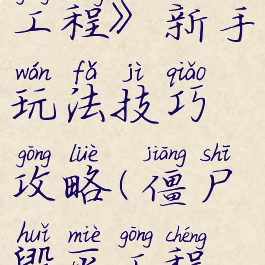 工程》新手
wán fǎ jì qiǎo
玩法技巧
gōng lüè jiāng shī
攻略(僵尸
huǐ miè gōng chéng
毁灭工程